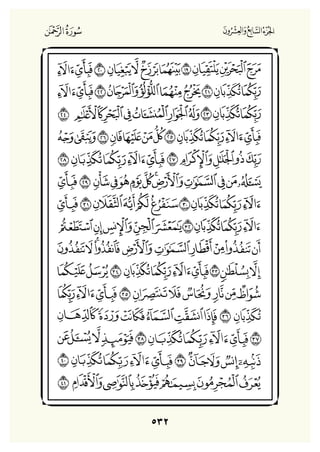 سُورَةُ ٱلرَّحۡمَٰن
ٱلجُزۡءُ ٱلسَّابِعُ وَٱلۡعِشۡرُونَ
مَرَجَ ٱلۡبَحۡرَيۡنِ يَلۡتَقِيَانِ ١٩ بَيۡنَهُمَا بَرۡزَخٞ لَّا يَبۡغِيَانِ ٢٠ فَبِأَيِّ ءَالَآءِ
رَبِّكُمَا تُكَذِّبَانِ ٢١ يَخۡرُجُ مِنۡهُمَا ٱللُّؤۡلُؤُ وَٱلۡمَرۡجَانُ ٢٢ فَبِأَيِّ ءَالَآءِ
رَبِّكُمَا تُكَذِّبَانِ ٢٣ وَلَهُ ٱلۡجَوَارِ ٱلۡمُنشَـَٔاتُ فِي ٱلۡبَحۡرِ كَٱلۡأَعۡلَٰمِ ٢٤
فَبِأَيِّ ءَالَآءِ رَبِّكُمَا تُكَذِّبَانِ ٢٥ كُلُّ مَنۡ عَلَيۡهَا فَانٖ ٢٦ وَيَبۡقَىٰ وَجۡهُ
رَبِّكَ ذُو ٱلۡجَلَٰلِ وَٱلۡإِكۡرَامِ ٢٧ فَبِأَيِّ ءَالَآءِ رَبِّكُمَا تُكَذِّبَانِ ٢٨
يَسۡـَٔلُهُۥ مَن فِي ٱلسَّمَٰوَٰتِ وَٱلۡأَرۡضِۚ كُلَّ يَوۡمٍ هُوَ فِي شَأۡنٖ ٢٩ فَبِأَيِّ
ءَالَآءِ رَبِّكُمَا تُكَذِّبَانِ ٣٠ سَنَفۡرُغُ لَكُمۡ أَيُّهَ ٱلثَّقَلَانِ ٣١ فَبِأَيِّ
ءَالَآءِ رَبِّكُمَا تُكَذِّبَانِ ٣٢ يَٰمَعۡشَرَ ٱلۡجِنِّ وَٱلۡإِنسِ إِنِ ٱسۡتَطَعۡتُمۡ
أَن تَنفُذُواْ مِنۡ أَقۡطَارِ ٱلسَّمَٰوَٰتِ وَٱلۡأَرۡضِ فَٱنفُذُواْۚ لَا تَنفُذُونَ
إِلَّا بِسُلۡطَٰنٖ ٣٣ فَبِأَيِّ ءَالَآءِ رَبِّكُمَا تُكَذِّبَانِ ٣٤ يُرۡسَلُ عَلَيۡكُمَا
شُوَاظٞ مِّن نَّارٖ وَنُحَاسٞ فَلَا تَنتَصِرَانِ ٣٥ فَبِأَيِّ ءَالَآءِ رَبِّكُمَا
تُكَذِّبَانِ ٣٦ فَإِذَا ٱنشَقَّتِ ٱلسَّمَآءُ فَكَانَتۡ وَرۡدَةٗ كَٱلدِّهَانِ
٣٧ فَبِأَيِّ ءَالَآءِ رَبِّكُمَا تُكَذِّبَانِ ٣٨ فَيَوۡمَئِذٖ لَّا يُسۡـَٔلُ عَن
ذَنۢبِهِۦٓ إِنسٞ وَلَا جَآنّٞ ٣٩ فَبِأَيِّ ءَالَآءِ رَبِّكُمَا تُكَذِّبَانِ ٤٠
يُعۡرَفُ ٱلۡمُجۡرِمُونَ بِسِيمَٰهُمۡ فَيُؤۡخَذُ بِٱلنَّوَٰصِي وَٱلۡأَقۡدَامِ ٤١
٥٣٢